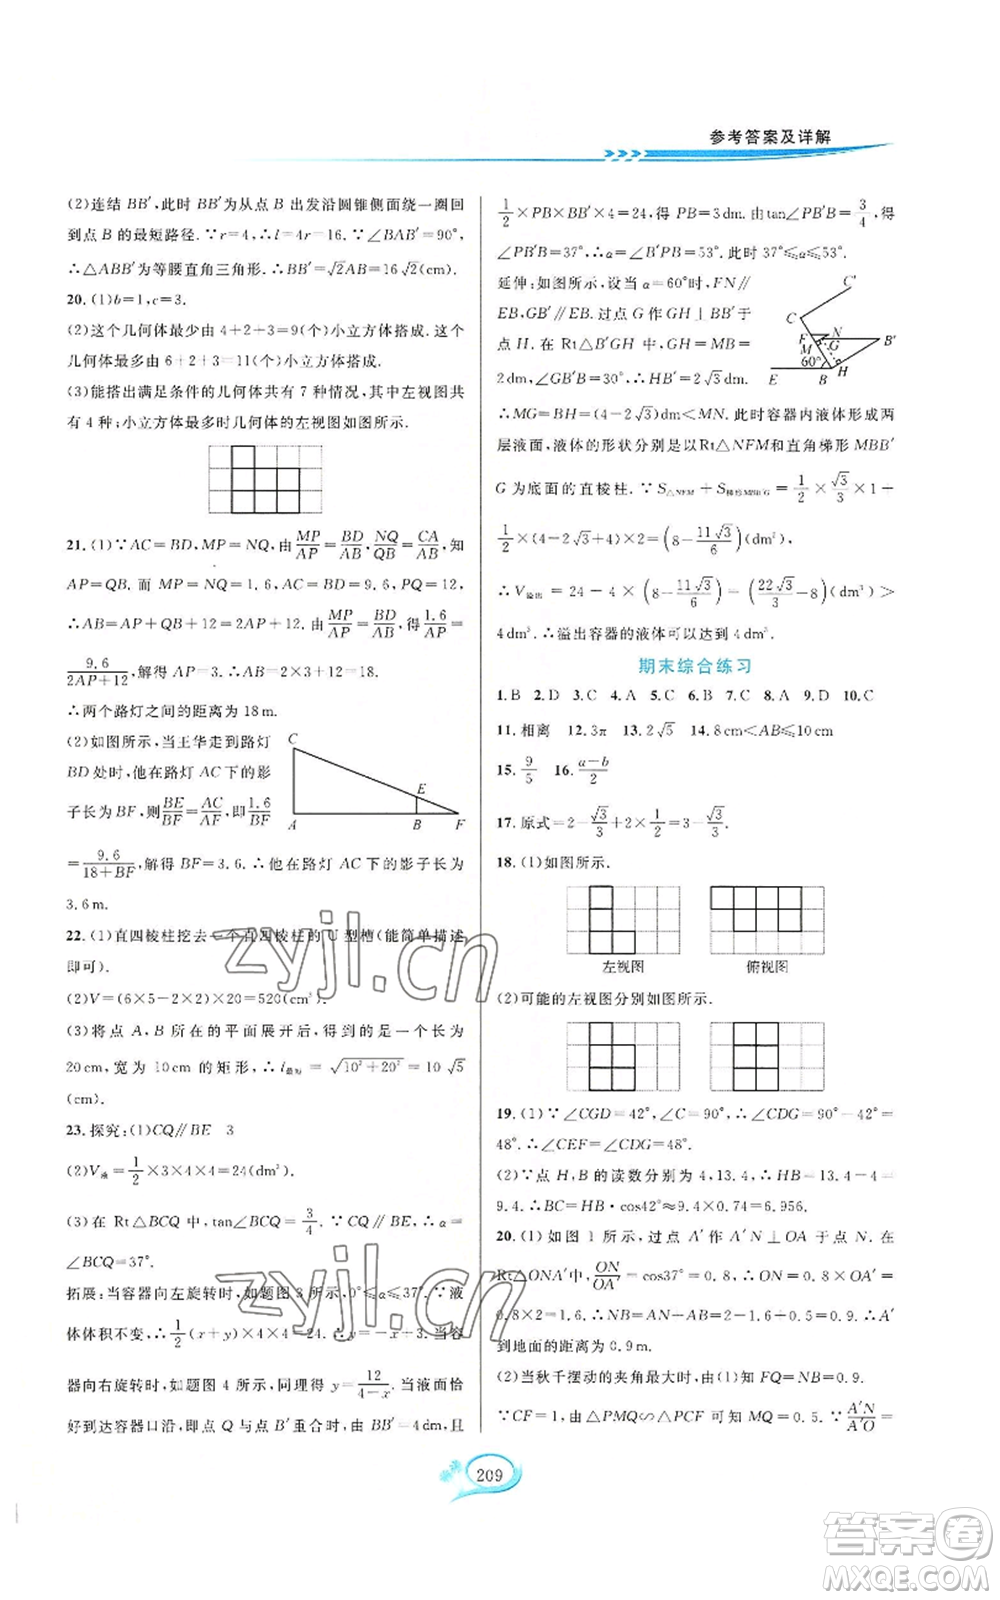 参考答案及详解
(2)连结 BB′,此时 BB′为从点 B 出发沿圆锥侧面绕一圈回
到点 B 的最短路径.∵r=4,∴l=4r=16.∵∠BAB′=90°,
∴△ABB′为等腰直角三角形.∴BB′=√2AB=16√2(cm).
20.(1)b=1,c=3.
(2)这个几何体最少由 4+2+3=9(个)小立方体搭成.这个
几何体最多由 6+2+3=11(个)小立方体搭成.
(3)能搭出满足条件的几何体共有 7 种情况,其中左视图共
有 4 种;小立方体最多时几何体的左视图如图所示.
21.(1)∵AC=BD,MP=NQ,由 MP/AP=BD/AB,NQ/QB=CA/AB,知
AP=QB.而 MP=NQ=1.6,AC=BD=9.6,PQ=12,
∴AB=AP+QB+12=2AP+12.由 MP/AP=BD/AB,得 1.6/AP=
9.6/(2AP+12).解得 AP=3.∴AB=2×3+12=18.
∴两个路灯之间的距离为 18m.
(2)如图所示,当王华走到路灯
BD 处时,他在路灯 AC 下的影
子长为 BF,则 BE/BF=AC/AF,即 1.6/BF
=9.6/(18+BF).解得 BF=3.6.∴他在路灯 AC 下的影子长为
3.6m.
C
E
A
B
F
22.(1)直四棱柱挖去一个直四棱柱的 U 型槽(能简单描述
即可).
(2)V=(6×5-2×2)×20=520(cm³).
(3)将点 A,B 所在的平面展开后,得到的是一个长为
20cm,宽为 10cm 的矩形,∴l最短=√(10²+20²)=10√5
(cm).
23.探究:(1)CQ∥BE 3
(2)V液=1/2×3×4×4=24(dm³).
(3)在 Rt△BCQ 中,tan∠BCQ=3/4.∵CQ∥BE,∴α=
∠BCQ=37°.
拓展:当容器向左旋转时,如题图 3 所示,0°≤α≤37°.∵液
体体积不变,∴1/2(x+y)×4×4=24.∴y=-x+3.当容
器向右旋转时,如题图 4 所示,同理得 y=12/(4-x).当液面恰
好到达容器口沿,即点 Q 与点 B′重合时,由 BB′=4dm,且
1/2×PB×BB′×4=24,得 PB=3dm.由 tan∠PB′B=3/4,得
∠PB′B=37°.∴α=∠B′PB=53°.此时 37°≤α≤53°.
延伸:如图所示,设当 α=60°时,FN∥
EB,GB′∥EB.过点 G 作 GH⊥BB′于
点 H.在 Rt△B′GH 中,GH=MB=
2dm,∠GB′B=30°,∴HB′=2√3dm.
∴MG=BH=(4-2√3)dm<MN.此时容器内液体形成两
层液面,液体的形状分别是以Rt△NFM和直角梯形 MBB′
G 为底面的直棱柱.∵S△NFM+S梯形MBB′G=1/2×√3/3×1+
1/2×(4-2√3+4)×2=(8-11√3/6)(dm²).
∴V溢出=24-4×(8-11√3/6)=(22√3/3-8)(dm³)>
4dm³.∴溢出容器的液体可以达到 4dm³.
C′
C
F
N
M
G
B′
60°
H
E
B
期末综合练习
1.B 2.D 3.C 4.A 5.C 6.B 7.C 8.A 9.D 10.C
11.相离 12.3π 13.2√5 14.8cm<AB≤10cm
15.9/5 16.(a-b)/2
17.原式=2-√3/3+2×√3/3... =3-√3/3.
18.(1)如图所示.
左视图 俯视图
(2)可能的左视图分别如图所示.
19.(1)∵∠CGD=42°,∠C=90°,∴∠CDG=90°-42°=
48°.∴∠CEF=∠CDG=48°.
(2)∵点 H,B 的读数分别为 4,13.4,∴HB=13.4-4=
9.4.∴BC=HB·cos42°≈9.4×0.74=6.956.
20.(1)如图 1 所示,过点 A′作 A′N⊥OA 于点 N.在
Rt△ONA′中,ON/OA′=cos37°=0.8,∴ON=0.8×OA′=
0.8×2=1.6.∴NB=AN+AB=2-1.6+0.5=0.9.∴A′
到地面的距离为 0.9m.
(2)当秋千摆动的夹角最大时,易知 FQ=NB=0.9.
∵CF=1,由△PMQ∽△PCF 可知 MQ=0.5.∵A′N/BN=
209
zyjl.cn
zyjl.cn
答案卷
MXQE.COM